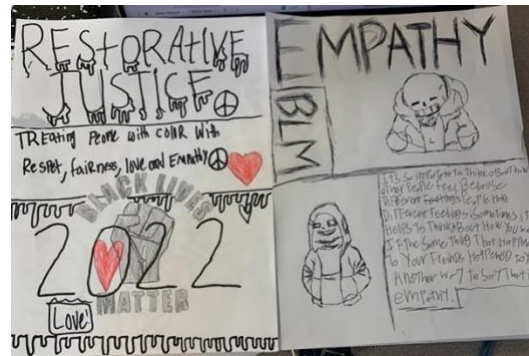 RESTORATIVE
JUSTICE
TREAting People with COLOR With
Respet, fairness, love and Empathy
BLACK LIVES
2022
MATTER
Love
EMPATHY
BLM
Its important to think about how
other People Feel Because
Different People Have
Different Feelings. Sometimes it
Helps to Think Boot How You
IF the Same Thing That Happened
to Your Friends Happened to
Another Way to Say That
emPathy.